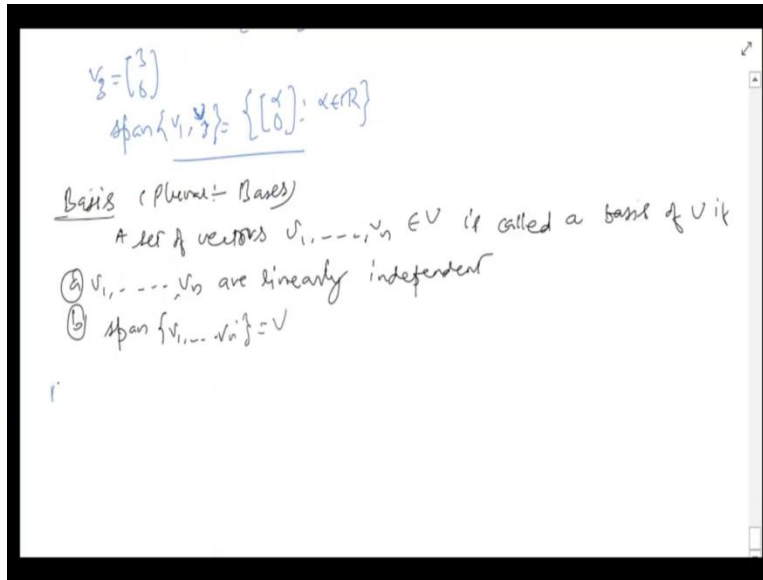 v₃ = [3 0]
span{v₁, v₃} = {[α 0] : α∈ℝ}
Basis (Plural:- Bases)
A set of vectors v₁, ----, vₙ ∈ V is called a basis of V if
(a) v₁, - ---, vₙ are linearly independent
(b) span {v₁, --- vₙ} = V